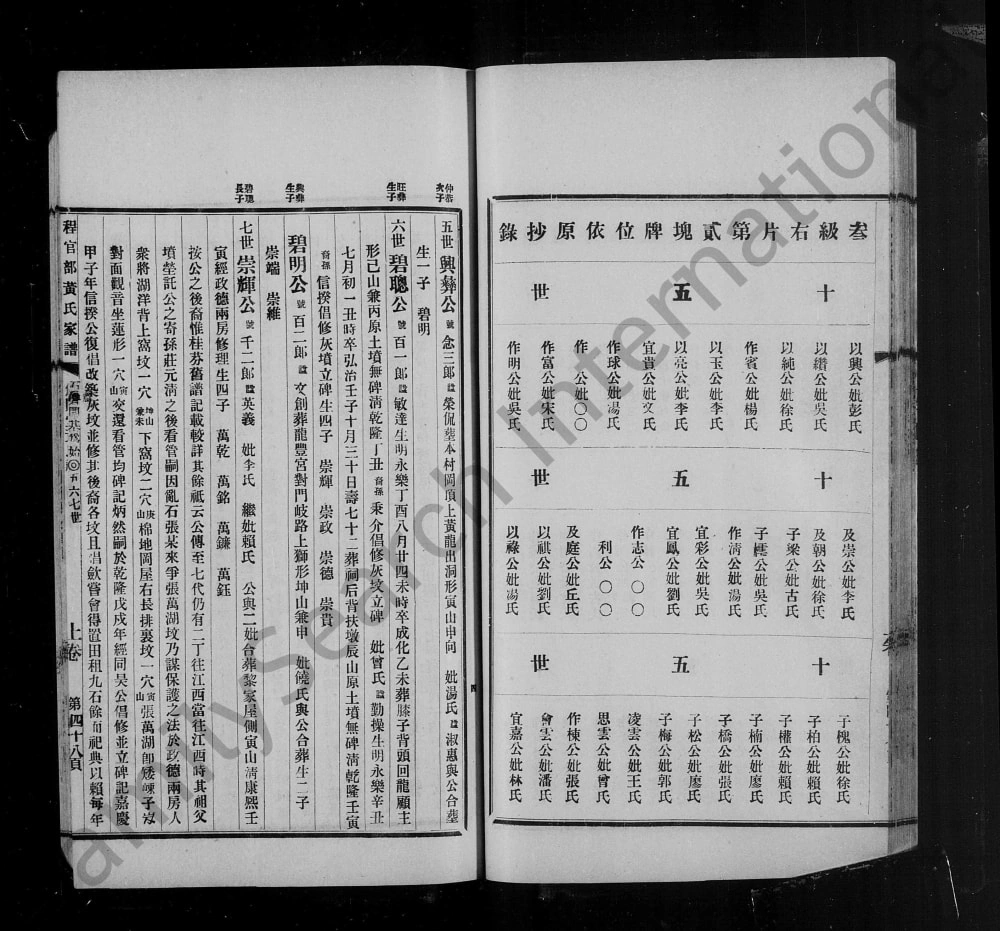 叁級右片第貳塊牌位依原抄錄
十五世
以興公妣彭氏
以纘公妣吳氏
以純公妣徐氏
作賓公妣楊氏
以玉公妣李氏
以亮公妣李氏
宜貴公妣文氏
作球公妣湯氏
作○公妣○○
作富公妣宋氏
作明公妣吳氏
十五世
及崇公妣李氏
及朝公妣徐氏
子梁公妣古氏
子公妣吳氏
作清公妣湯氏
宜彩公妣吳氏
宜鳳公妣劉氏
作志公○○
利公○○
及庭公妣丘氏
以祺公妣劉氏
以祿公妣湯氏
十五世
子槐公妣徐氏
子柏公妣賴氏
子權公妣賴氏
子楠公妣廖氏
子橋公妣張氏
子松公妣廖氏
子梅公妣郭氏
凌雲公妣王氏
思雲公妣曾氏
作棟公妣張氏
會雲公妣潘氏
宜嘉公妣林氏
四
仲恭次子
五世 興彝公 號念三郎諡榮侃葬本村岡頂上黃龍出洞形寅山申向 妣湯氏諡淑惠與公合葬
生一子 碧明
旺彝生子
六世 碧聰公 號百一郎諡敏達生明永樂丁酉八月廿四未時卒成化乙未葬膝子背頭回龍顧主
形己山兼丙原土墳無碑清乾隆丁丑裔孫秉介倡修灰墳立碑 妣曾氏諡勤操生明永樂辛丑
七月初一丑時卒弘治壬子十月三十日壽七十二葬祠后背扶墩辰山原土墳無碑清乾隆壬寅
裔孫信揆倡修灰墳立碑生四子 崇輝 崇政 崇德 崇貴
興彝生子
碧明公 號百二郎諡文創葬龍豐宮對門岐路上獅形坤山兼申 妣饒氏與公合葬生二子
崇端 崇維
碧聰長子
七世 崇輝公 號千二郎諡英義 妣李氏 繼妣賴氏 公與二妣合葬黎家屋側寅山清康熙壬
寅經政德兩房修理生四子 萬乾 萬銘 萬鐮 萬鈺
按公之後裔惟桂芬舊譜記載較詳其餘祇云公傳至七代仍有二丁往江西當往江西時其祖父
墳塋託公之寄孫莊元清之後看管嗣因亂石張某來爭張萬湖坟乃謀保護之法於政德兩房人
衆將湖洋背上窩坟一穴坤山兼未下窩坟二穴庚山棉地岡屋右長排裏坟一穴寅山張萬湖卽矮崠子坟
對面觀音坐蓮形一穴寅山交還看管均碑記炳然嗣於乾隆戊戌年經同吳公倡修並立碑記嘉慶
甲子年信揆公復倡改築灰坟並修其後裔各坟且倡歛嘗會得置田租九石餘而祀典以賴每年
程官部黃氏家譜
五六七世
上卷 第四十八頁
FamilySearch International